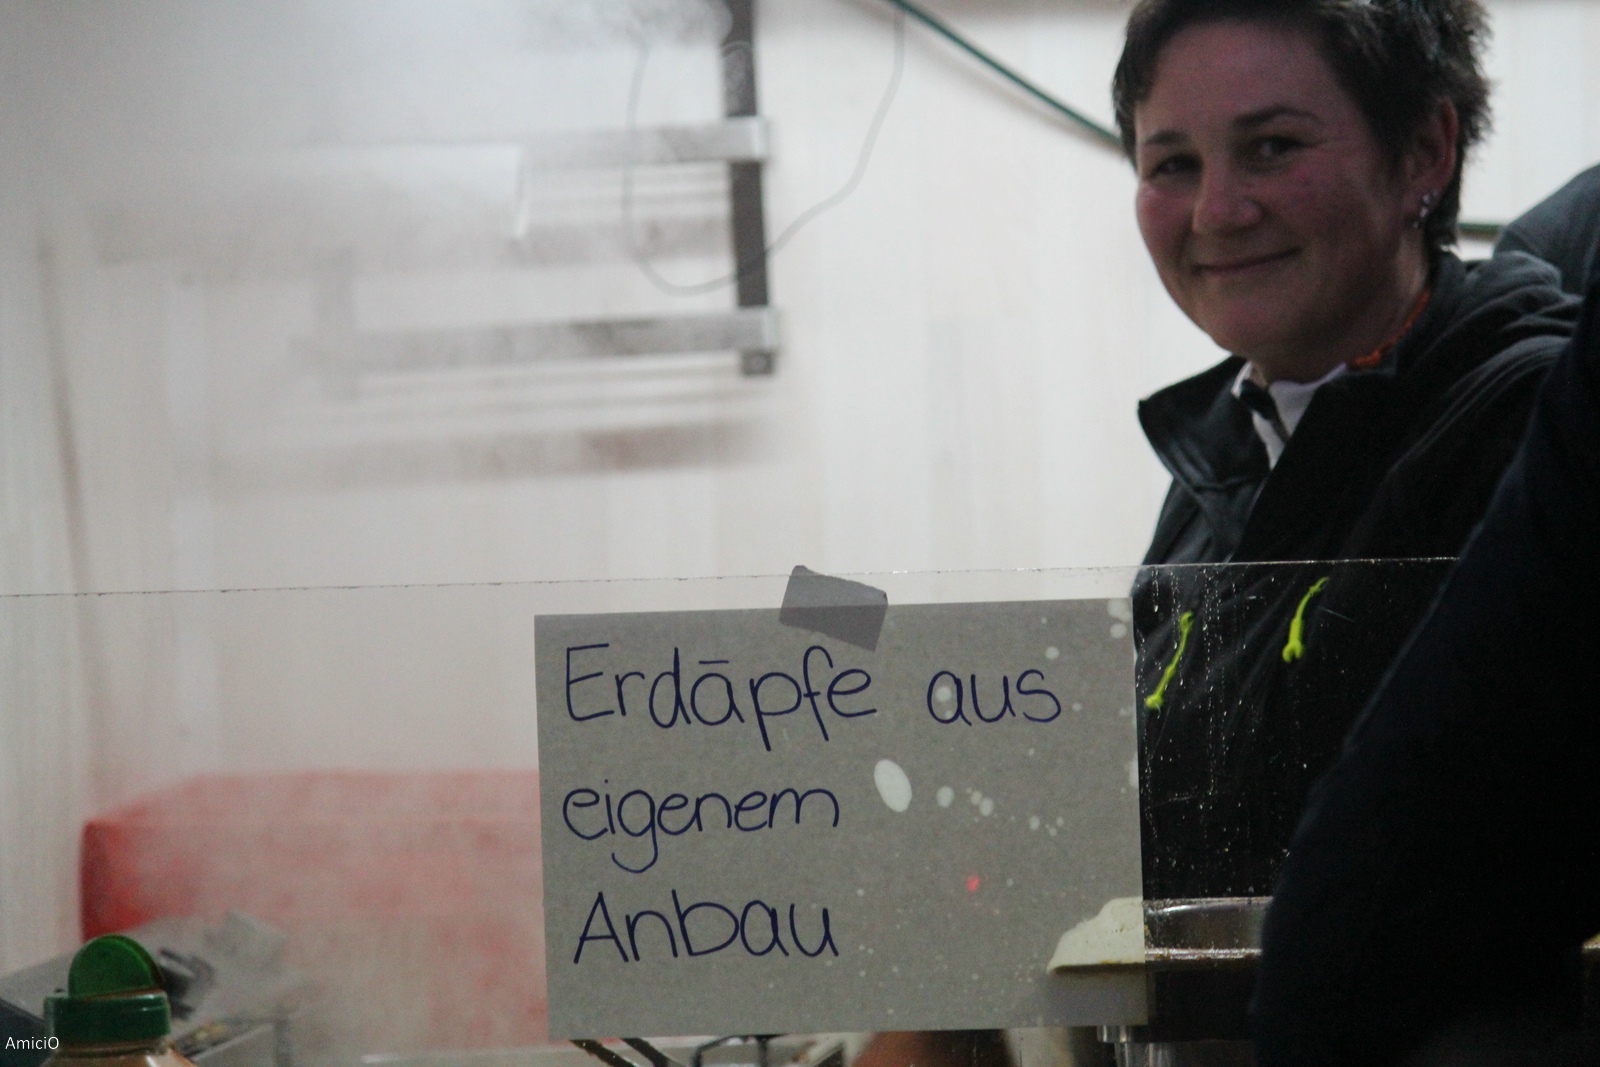 Erdäpfe aus
eigenem
Anbau
AmiciO